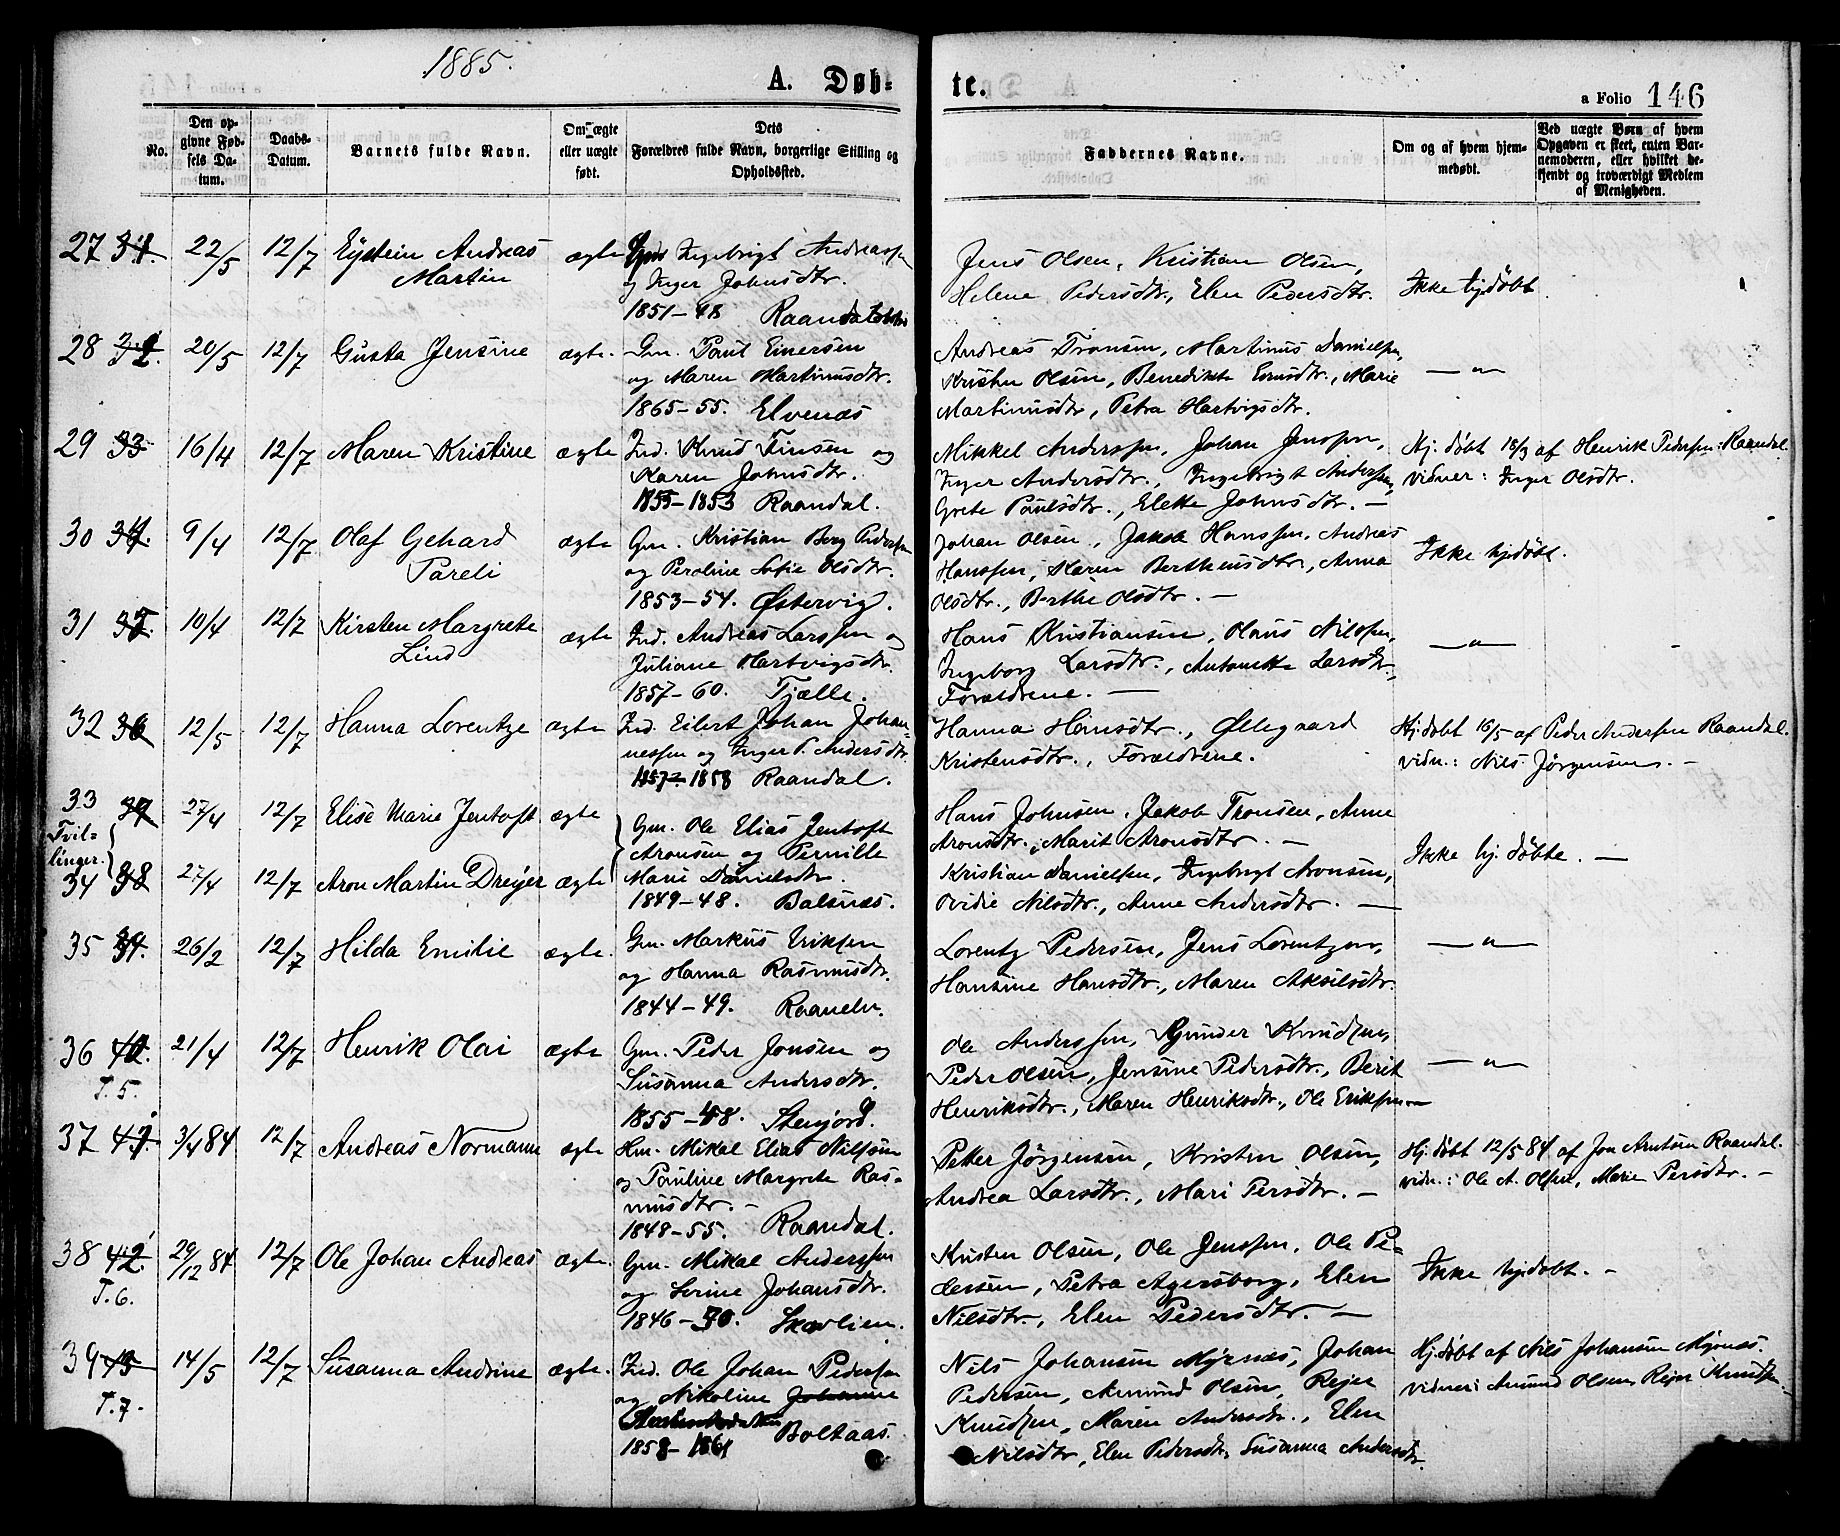 1885.
A. Døb-
te.
a Folio 146
No.
Den op-
givne Fød-
sels Da-
tum.
Daabs-
Datum.
Barnets fulde Navn.
Om ægte
eller uægte
født.
Dets
Forældres fulde Navn, borgerlige Stilling og
Opholdssted.
Faddernes Navne.
Om og af hvem hjem-
medøbt.
Ved uægte Børn af hvem
Opgaven er skeet, enten Bar-
nemoderen, eller hvilket be-
kjendt og troværdigt Medlem
af Menigheden.
27 31. 22/5 12/7 Eystein Andreas
Martin
ægte
Gm. Ingebrigt Andreassen
og Inger Johnsdtr.
1851-48 Raanda
Jens Olsen, Kristian Olsen,
Helene Pedersdtr., Elen Pedersdtr.
Ikke hjdøbt
28 32. 20/5 12/7 Gusta Jensine ægte.
Gm. Paul Einersen
og Maren Martinusdtr.
1865-55. Elvenæs
Andreas Tronsen, Martinus Danielsen,
Kristen Olsen, Benedikte Ensdtr., Marie
Martinusdtr, Petra Hartvigsdtr.
— " —
29 33. 16/4 12/7 Maren Kristine ægte
Ind. Knud Finsen og
Karen Johnsdtr.
1855-1853 Raandal.
Mikkel Anderssen, Johan Jenssen,
Inger Andersdtr., Ingebrigt Anderssen,
Grete Paulsdtr., Elette Johnsdtr. —
Hj. døbt 18/3 af Henrik Pederssen Raandal
vidner: Inger Olsdtr.
30 34. 9/4 12/7 Olaf Gehard
Pareli
ægte
Gm. Kristian Berg Pederssen
og Peroline Sofie Olsdtr.
1853-54. Østervig.
Johan Olsen, Jakob Hanssen, Andreas
Hanssen, Maren Bertheusdtr., Anna
Olsdtr., Berthe Olsdtr. —
Ikke hjdøbt.
31 35. 10/4 12/7 Kirsten Margrete
Lind
ægte
Ind. Andreas Larssen og
Juliane Hartvigsdtr.
1857-60. Tjælle.
Hans Kristiansen, Hans Nilssen,
Ingeborg Larsdtr., Antonette Larsdtr,
Forældrene. —
— " —
32 36 12/5 12/7 Hanna Lorentze ægte
Ind. Eilert Johan Johan-
nessen og Inger P. Andersdtr.
1857-1858 Raandal.
Hanna Hansdtr., Øllegaard
Kristensdtr., Forældrene.
Hj.døbt 16/5 af Peder Anderssen Raandal.
vidn.: Nils Jørgensen. —
33 37 27/4 12/7 Elise Marie Jentoft ægte
Tvil-
linger.
Gm. Ole Elias Jentoft
Aronsen og Pernille
Hans Johnsen, Jakob Tronsen, Anne
Aronsdtr., Marit Aronsdtr. —
Ikke hj. døbte. —
34 38 27/4 12/7 Aron Martin Dreyer ægte
Marie Danielsdtr.
1849-48. Balsnæs.
Kristian Danielsen, Ingebrigt Aronsen,
Ovidie Nilsdtr., Anne Andersdtr. —
35 39. 26/2 12/7 Hilda Emilie ægte.
Gm. Markus Eriksen
og Hanna Rasmusdtr.
1844-49. Raanelv.
Lorentz Pedersen, Jens Lorentzen,
Hansine Hansdtr., Maren Akselsdtr.
— " —
36 40. 21/4 12/7 Henrik Olai ægte
T. 5.
Gm. Peder Jonsen og
Susanna Andersdtr.
1855-48. Stenjord.
Ole Anderssen, Gunder Knudsen,
Peder Olsen, Jensine Pedersdtr., Berit
Henriksdtr., Maren Henriksdtr., Ole Eriksen —
— " —
37 41. 3/4 84 12/7 Andreas Normann ægte
Hm. Mikal Elias Nilssen
og Pauline Margrete Ras-
musdtr. —
1848-55. Raandal.
Petter Jørgensen, Kristen Olsen,
Andrea Larsdtr., Mari Persdtr. —
Hj.døbt 12/5 84 af Jon Arntsen Raandal.
vidn.: Ole A. Olsen, Marie Persdtr. —
38 42. 29/12 84 12/7 Ole Johan Andreas ægte.
T. 6.
Gm. Mikal Anderssen
og Serine Johansdtr.
1846-50. Skavlien.
Kristen Olsen, Ole Jenssen, Ole Pe-
dersen, Petra Agersborg, Elen
Nilsdtr., Elen Pedersdtr. —
Ikke hjdøbt. —
39 43 14/5 12/7 Susanna Andrine ægte.
T. 7.
Ind. Ole Johan Pederssen
og Nikoline Johanne
1858-1861 Boltaas
Nils Johansen Myrnæs, Johan
Pedersen, Amund Olsen, Rejer
Knudsen, Maren Andersdtr., Elen
Nilsdtr, Elen Pedersdtr, Susanna Andersdtr.
Hj.døbt af Nils Johansen Myrnæs.
vidner: Amund Olsen, Rejer Knudsen